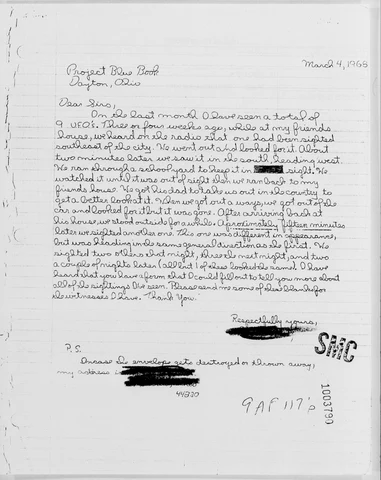 March 4, 1968
Project Blue Book
Dayton, Ohio
Dear Sirs,
In the last month I have seen a total of
9 UFO's. Three or four weeks ago, while at my friends
house, we heard on the radio that one had been sighted
southeast of the city. We went out and looked for it. About
two minutes later we saw it in the south, heading west.
We ran through a schoolyard to keep it in sight. We
watched it until it was out of sight then we ran back to my
friends house. We got his dad to take us out in the country to
get a better look at it. When we got out a ways, we got out of the
car and looked for it but it was gone. After arriving back at
his house, we stood outside for a while. Aproximately fifteen minutes
later we sighted another one. This one was different in appearance,
but was heading in the same general direction as the first. We
sighted two others that night, three the next night, and two
a couple of nights later (all but 1 of these looked the same). I have
heard that you have a form that I could fill out to tell you more about
all of the sightings I've seen. Please send me some of these blanks for
the witnesses I have. Thank You.
Respectfully yours,
SMC
P.S.
Incase the envelope gets destroyed or thrown away,
my address is
44320
9AF 117's
1003790